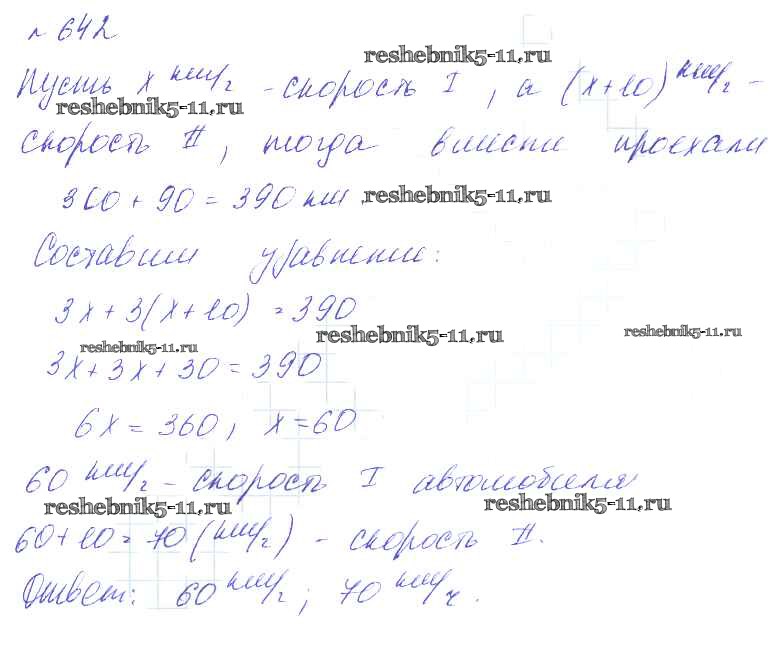 № 642
reshebnik5-11.ru
Пусть x км/ч - скорость I, а (x+10) км/ч -
reshebnik5-11.ru
скорость II, тогда вместе проехали
300 + 90 = 390 км
reshebnik5-11.ru
Составим уравнение:
3x + 3(x+10) = 390
reshebnik5-11.ru
reshebnik5-11.ru
reshebnik5-11.ru
3x + 3x + 30 = 390
6x = 360, x = 60
60 км/ч - скорость I автомобиля
reshebnik5-11.ru
reshebnik5-11.ru
60 + 10 = 70 (км/ч) - скорость II.
Ответ: 60 км/ч; 70 км/ч.